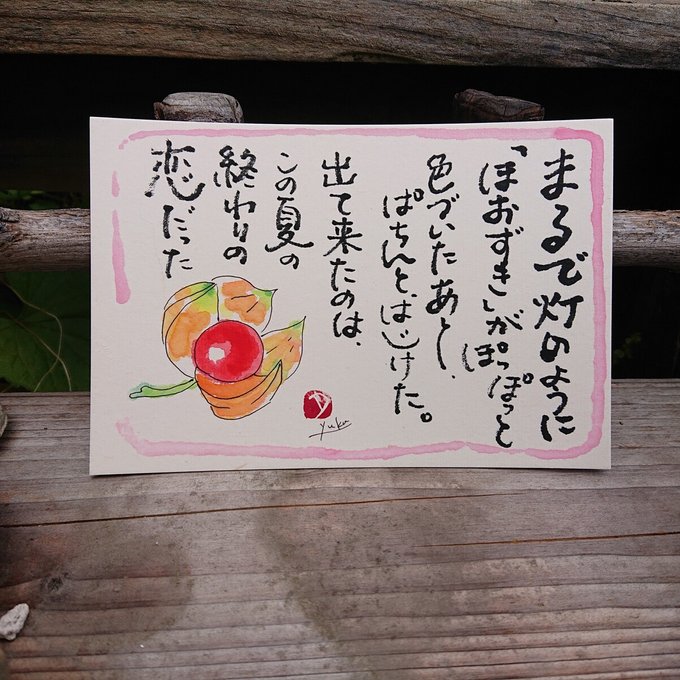 まるで灯のように
「ほおずき」がぽっぽっと
色づいたあと、
ぱちんとはじけた。
出て来たのは、
この夏の
終わりの
恋だった
yuka